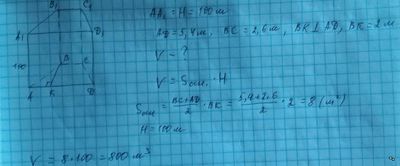 B₁ C₁
A₁ D₁
100
B C
A K D
AA₁ = H = 100 м
AD = 5,4 м, BC = 2,6 м, BK ⊥ AD, BK = 2 м
V - ?
V = Sосн. · H
Sосн. = (BC+AD)/2 · BK = (5,4+2,6)/2 · 2 = 8 (м²)
H = 100 м
V = 8·100 = 800 м³